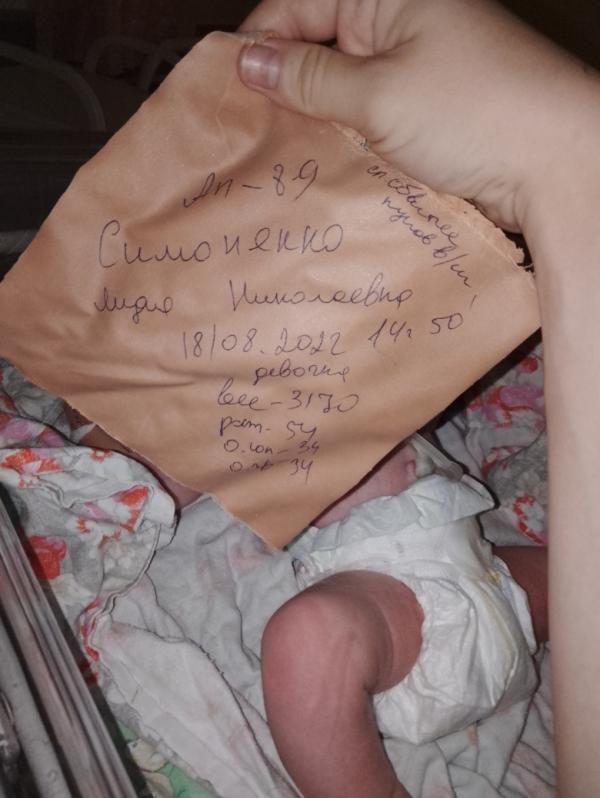 Ап-89
Симонянко
Лидия Николаевна
18/08.2022 14г 50'
девочка
вес-3170
рост-54
о.гол-34
о.гр-34